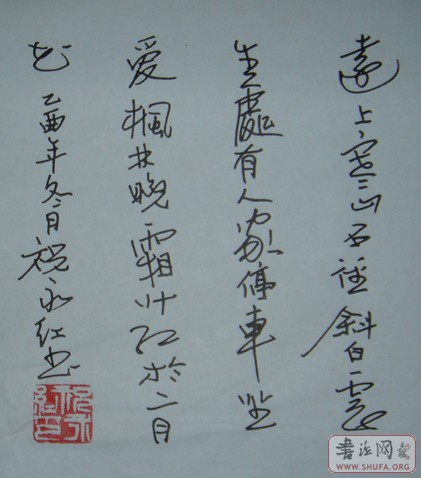 遠上寒山石径斜白雲
生處有人家停車坐
愛楓林晚霜叶红於二月
花 乙酉年冬日祝永红书
祝永紅印
書法网
WWW.SHUFA.ORG